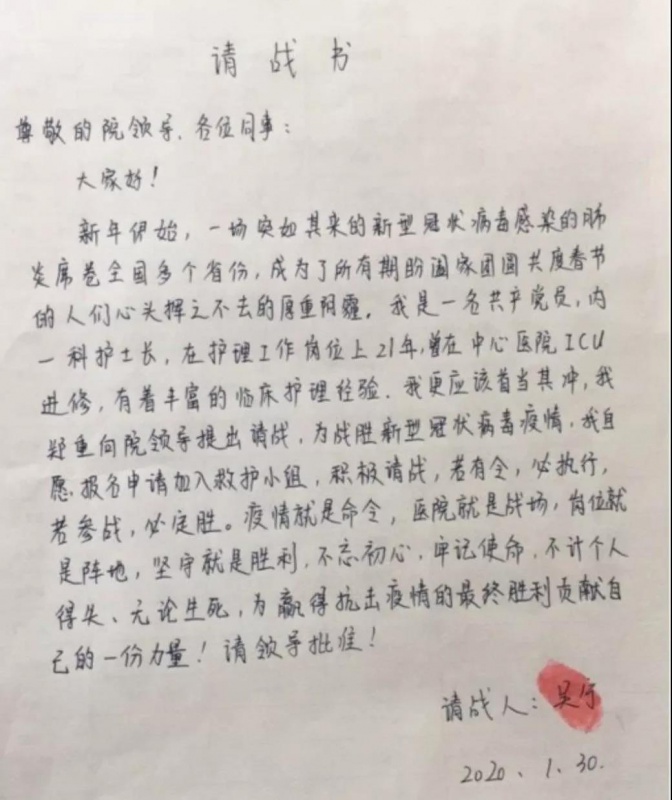 请战书
尊敬的院领导、各位同事：
大家好！
新年伊始，一场突如其来的新型冠状病毒感染的肺
炎席卷全国多个省份，成为了所有期盼阖家团圆共度春节
的人们心头挥之不去的厚重阴霾。我是一名共产党员，内
一科护士长，在护理工作岗位上21年，曾在中心医院ICU
进修，有着丰富的临床护理经验．我更应该首当其冲，我
疑重向院领导提出请战，为战胜新型冠状病毒疫情，我自
愿报名申请加入救护小组，积极请战，若有令，必执行，
若参战，必定胜。疫情就是命令，医院就是战场，岗位就
是阵地，坚守就是胜利，不忘初心，牢记使命，不计个人
得失、无论生死，为赢得抗击疫情的最终胜利贡献自
己的一份力量！请领导批准！
请战人：吴
2020、1、30．